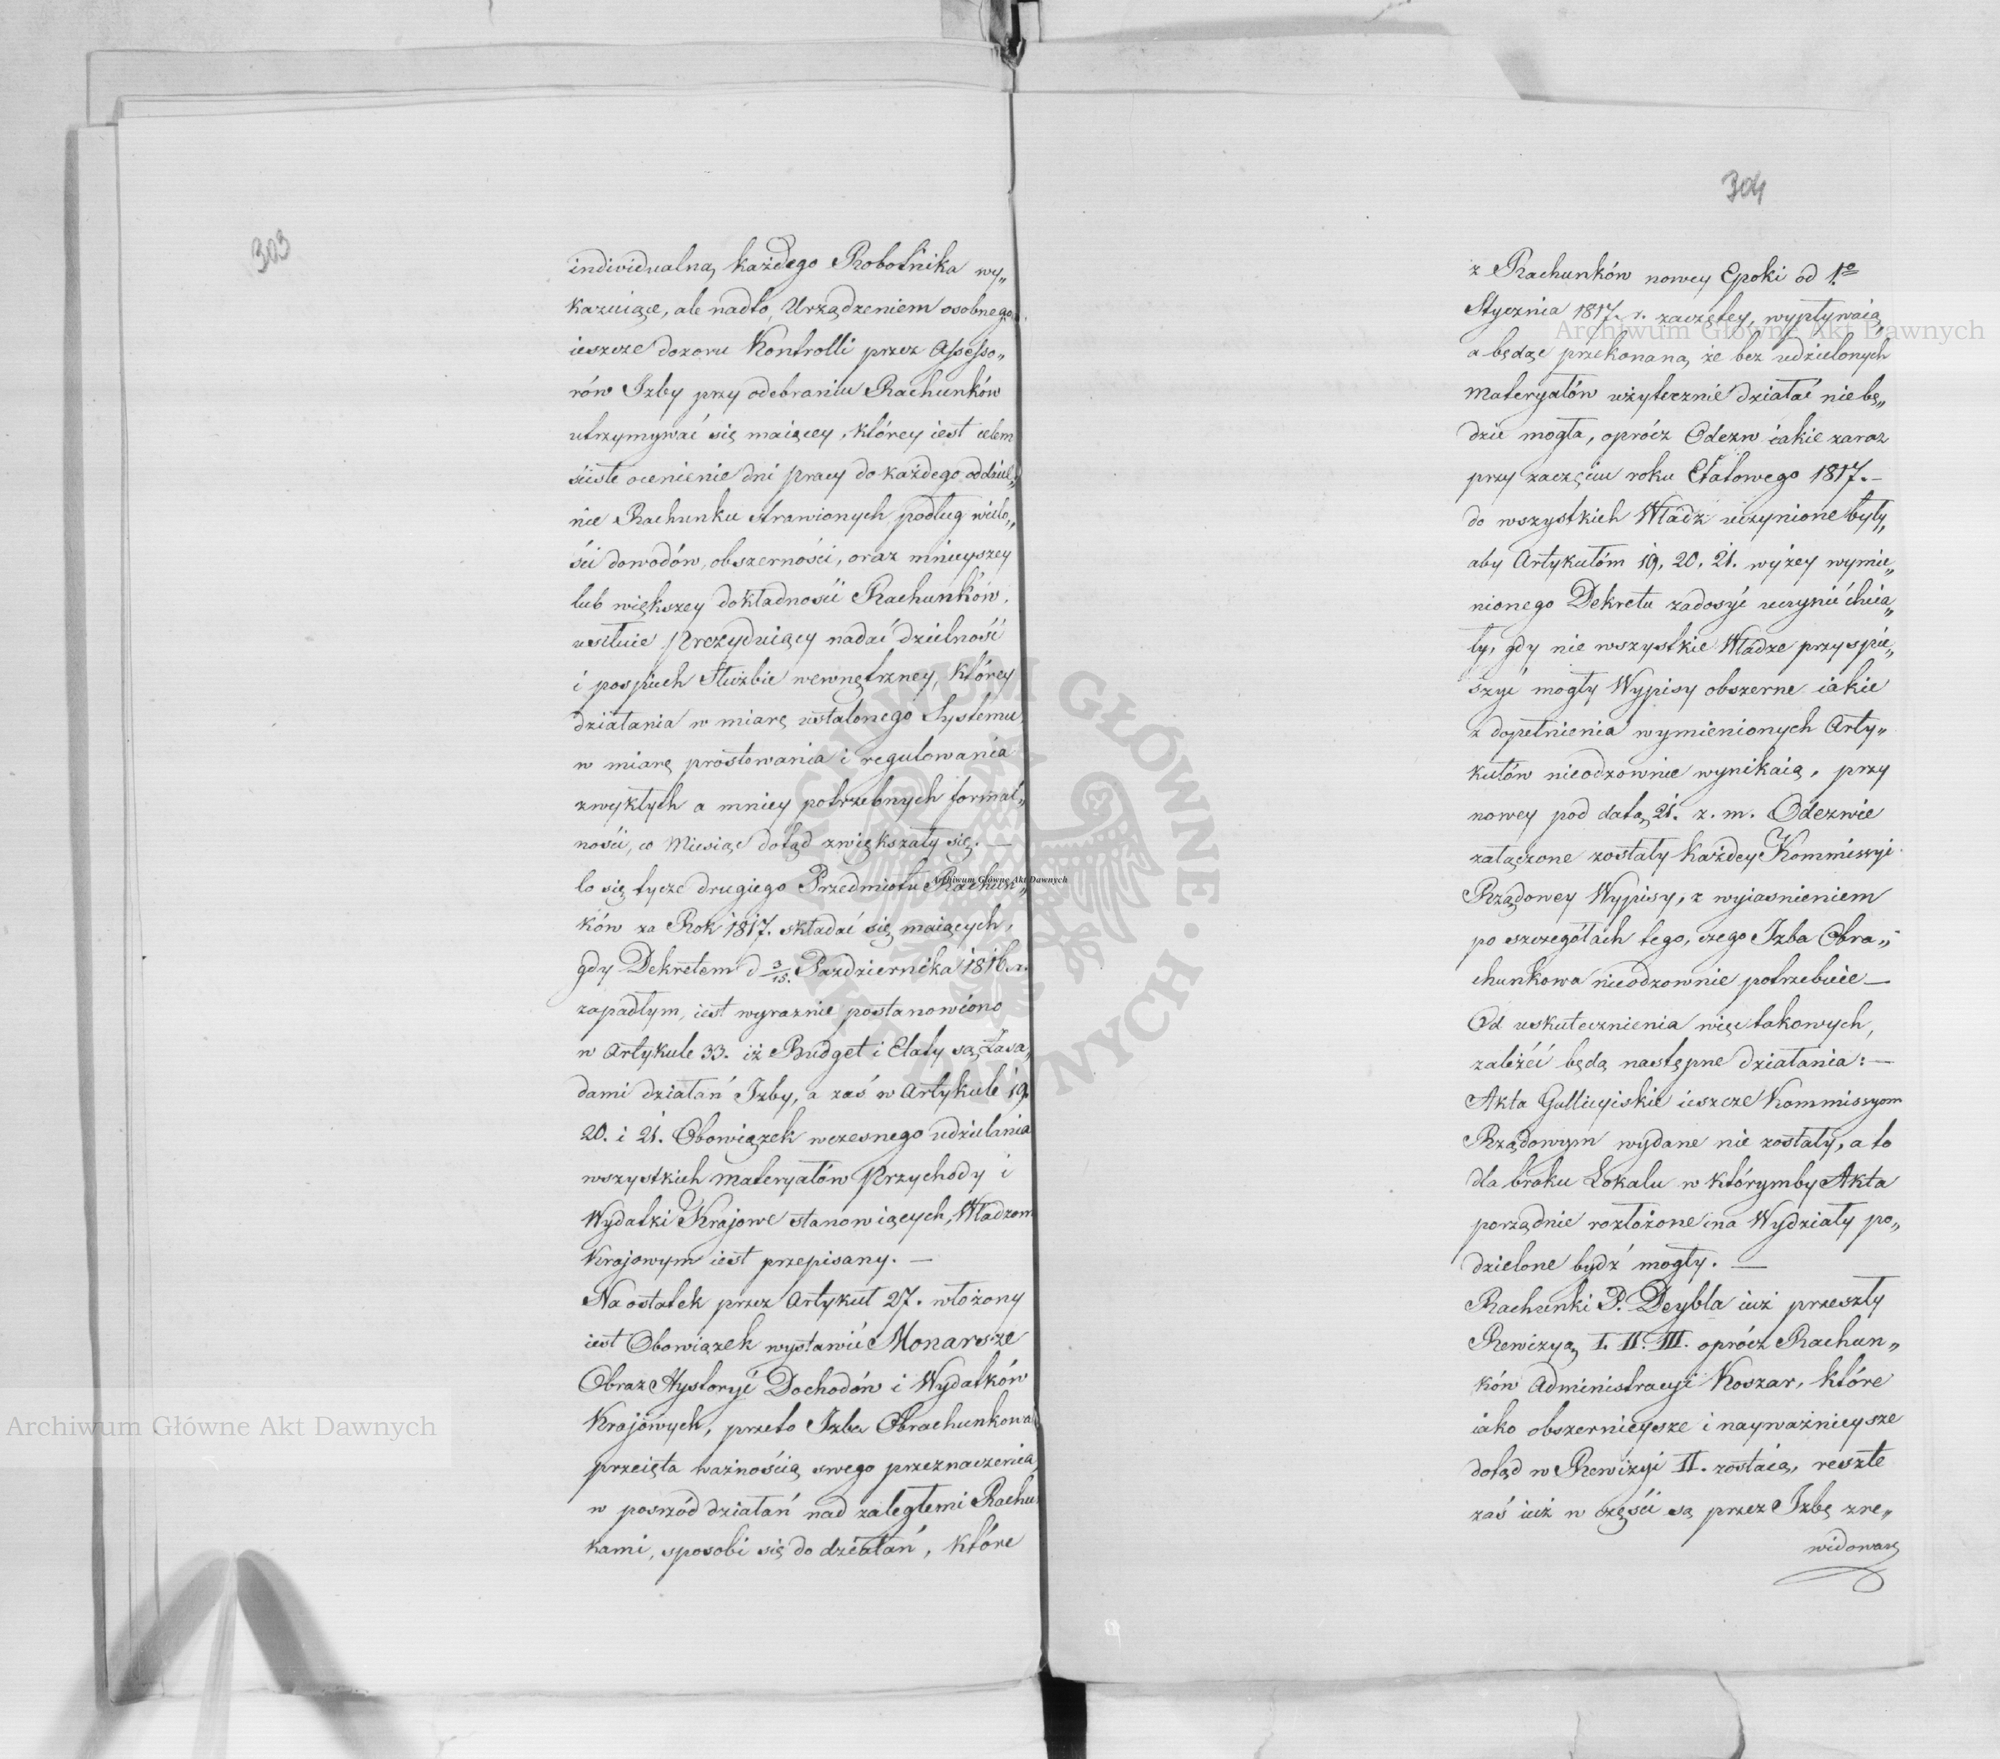 303
individualną każdego Robotnika wy„
kazuiące, ale nadto, Urządzeniem osobnego
ieszcze dozoru Kontrolli przez Assesso„
rów Izby przy odebraniu Rachunków
utrzymywać się maiącey, którey iest celem
ściste ocenienie dni pracy do każdego oddziel„
nie Rachunku strawionych podług wielo„
ści dowodów, obszerności, oraz mnieyszey
lub większey dokładności Rachunków,
usiłuie Prezyduiący nadać dzielność
i pospiech Służbie wewnętrzney, którey
działania w miarę ustalonego Systemu
w miarę prostowania i regulowania
zwykłych a mniey potrzebnych formal„
ności, co Miesiąc dotąd zwiększały się. —
Co się tycze drugiego Przedmiotu Rachun„
ków za Rok 1817. składać się maiących,
gdy Dekretem d 3/15. Pazdziernika 1816. r.
zapadłym, iest wyraznie postanowiono
w Artykule 33. iż Budget i Etaty są Zasa„
dami działań Izby, a zaś w Artykule 19.
20. i 21. Obowiązek wczesnego udzielania
wszystkich Materyałów Przychody i
Wydatki Krajowe stanowiących, Władzom
Krajowym iest przepisany. —
Na ostatek przez Artykuł 27. włożony
iest Obowiązek wystawić Monarsze
Obraz Hystoryi Dochodów i Wydatków
Krajowych, przeto Izba Obrachunkowa
przeięta ważnością swego przeznaczenia
w posrzód działań nad zaległemi Rachu
kami, sposobi się do działań, które
304
z Rachunków nowey Epoki od 1º
Stycznia 1817. r. zaczętey, wypływaią,
a będąc przekonaną, że bez udzielonych
Materyałów użytecznie działać niebę„
dzie mogła, oprócz Odezw iakie zaraz
przy zaczęciu roku Etatowego 1817. –
do wszystkich Władz uczynione były,
aby Artykułóm 19. 20. 21. wyżey wymie„
nionego Dekretu zadosyć uczynić chcia„
ły, gdy nie wszystkie Władze przyspie„
szyć mogły Wypisy obszerne iakie
z dopełnienia wymienionych Arty„
kułów nieodzownie wynikaią, przy
nowey pod datą 21. z. m. Odezwie
załączone zostały każdey Kommissyi
Rządowey Wypisy, z wyiasnieniem
po szczegółach tego, czego Izba Obra„
chunkowa nieodzownie potrzebuie —
Od uskutecznienia więc takowych,
zależéć będą następne działania: —
Akta Gallicyiskie ieszcze Kommissyom
Rządowym wydane nie zostały, a to
dla braku Lokalu w którymby Akta
porządnie rozłożone i na Wydziały po„
dzielone bydź mogły. —
Rachunki P. Deybla iuż przeszły
Rewizyą I. II. III. oprócz Rachun„
ków Administracyi Koszar, które
iako obszernieysze i nayważnieysze
dotąd w Rewizyi II. zostaią, reszte
zaś iuż w części są przez Izbę zre„
widowan
Archiwum Główne Akt Dawnych
Archiwum Główne Akt Dawnych
Archiwum Główne Akt Dawnych